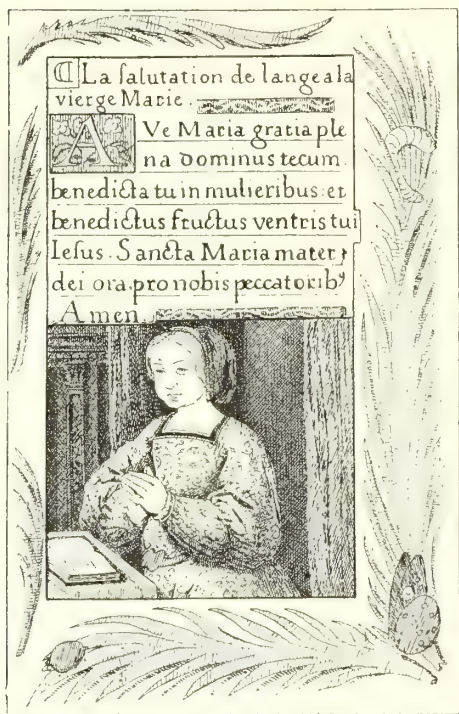 ¶ La salutation de lange a la
vierge Marie.
AVe Maria gratia ple
na dominus tecum.
benedicta tu in mulieribus: et
benedictus fructus ventris tui
Iesus. Sancta Maria mater
dei ora pro nobis peccatoribꝰ
Amen